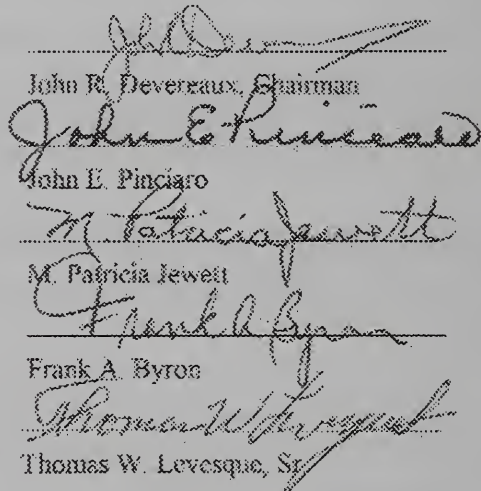 John R. Devereaux, Chairman
John E Pinciaro
John E. Pinciaro
M. Patricia Jewett
M. Patricia Jewett
Frank A. Byron
Frank A. Byron
Thomas W Levesque
Thomas W. Levesque, Sr.